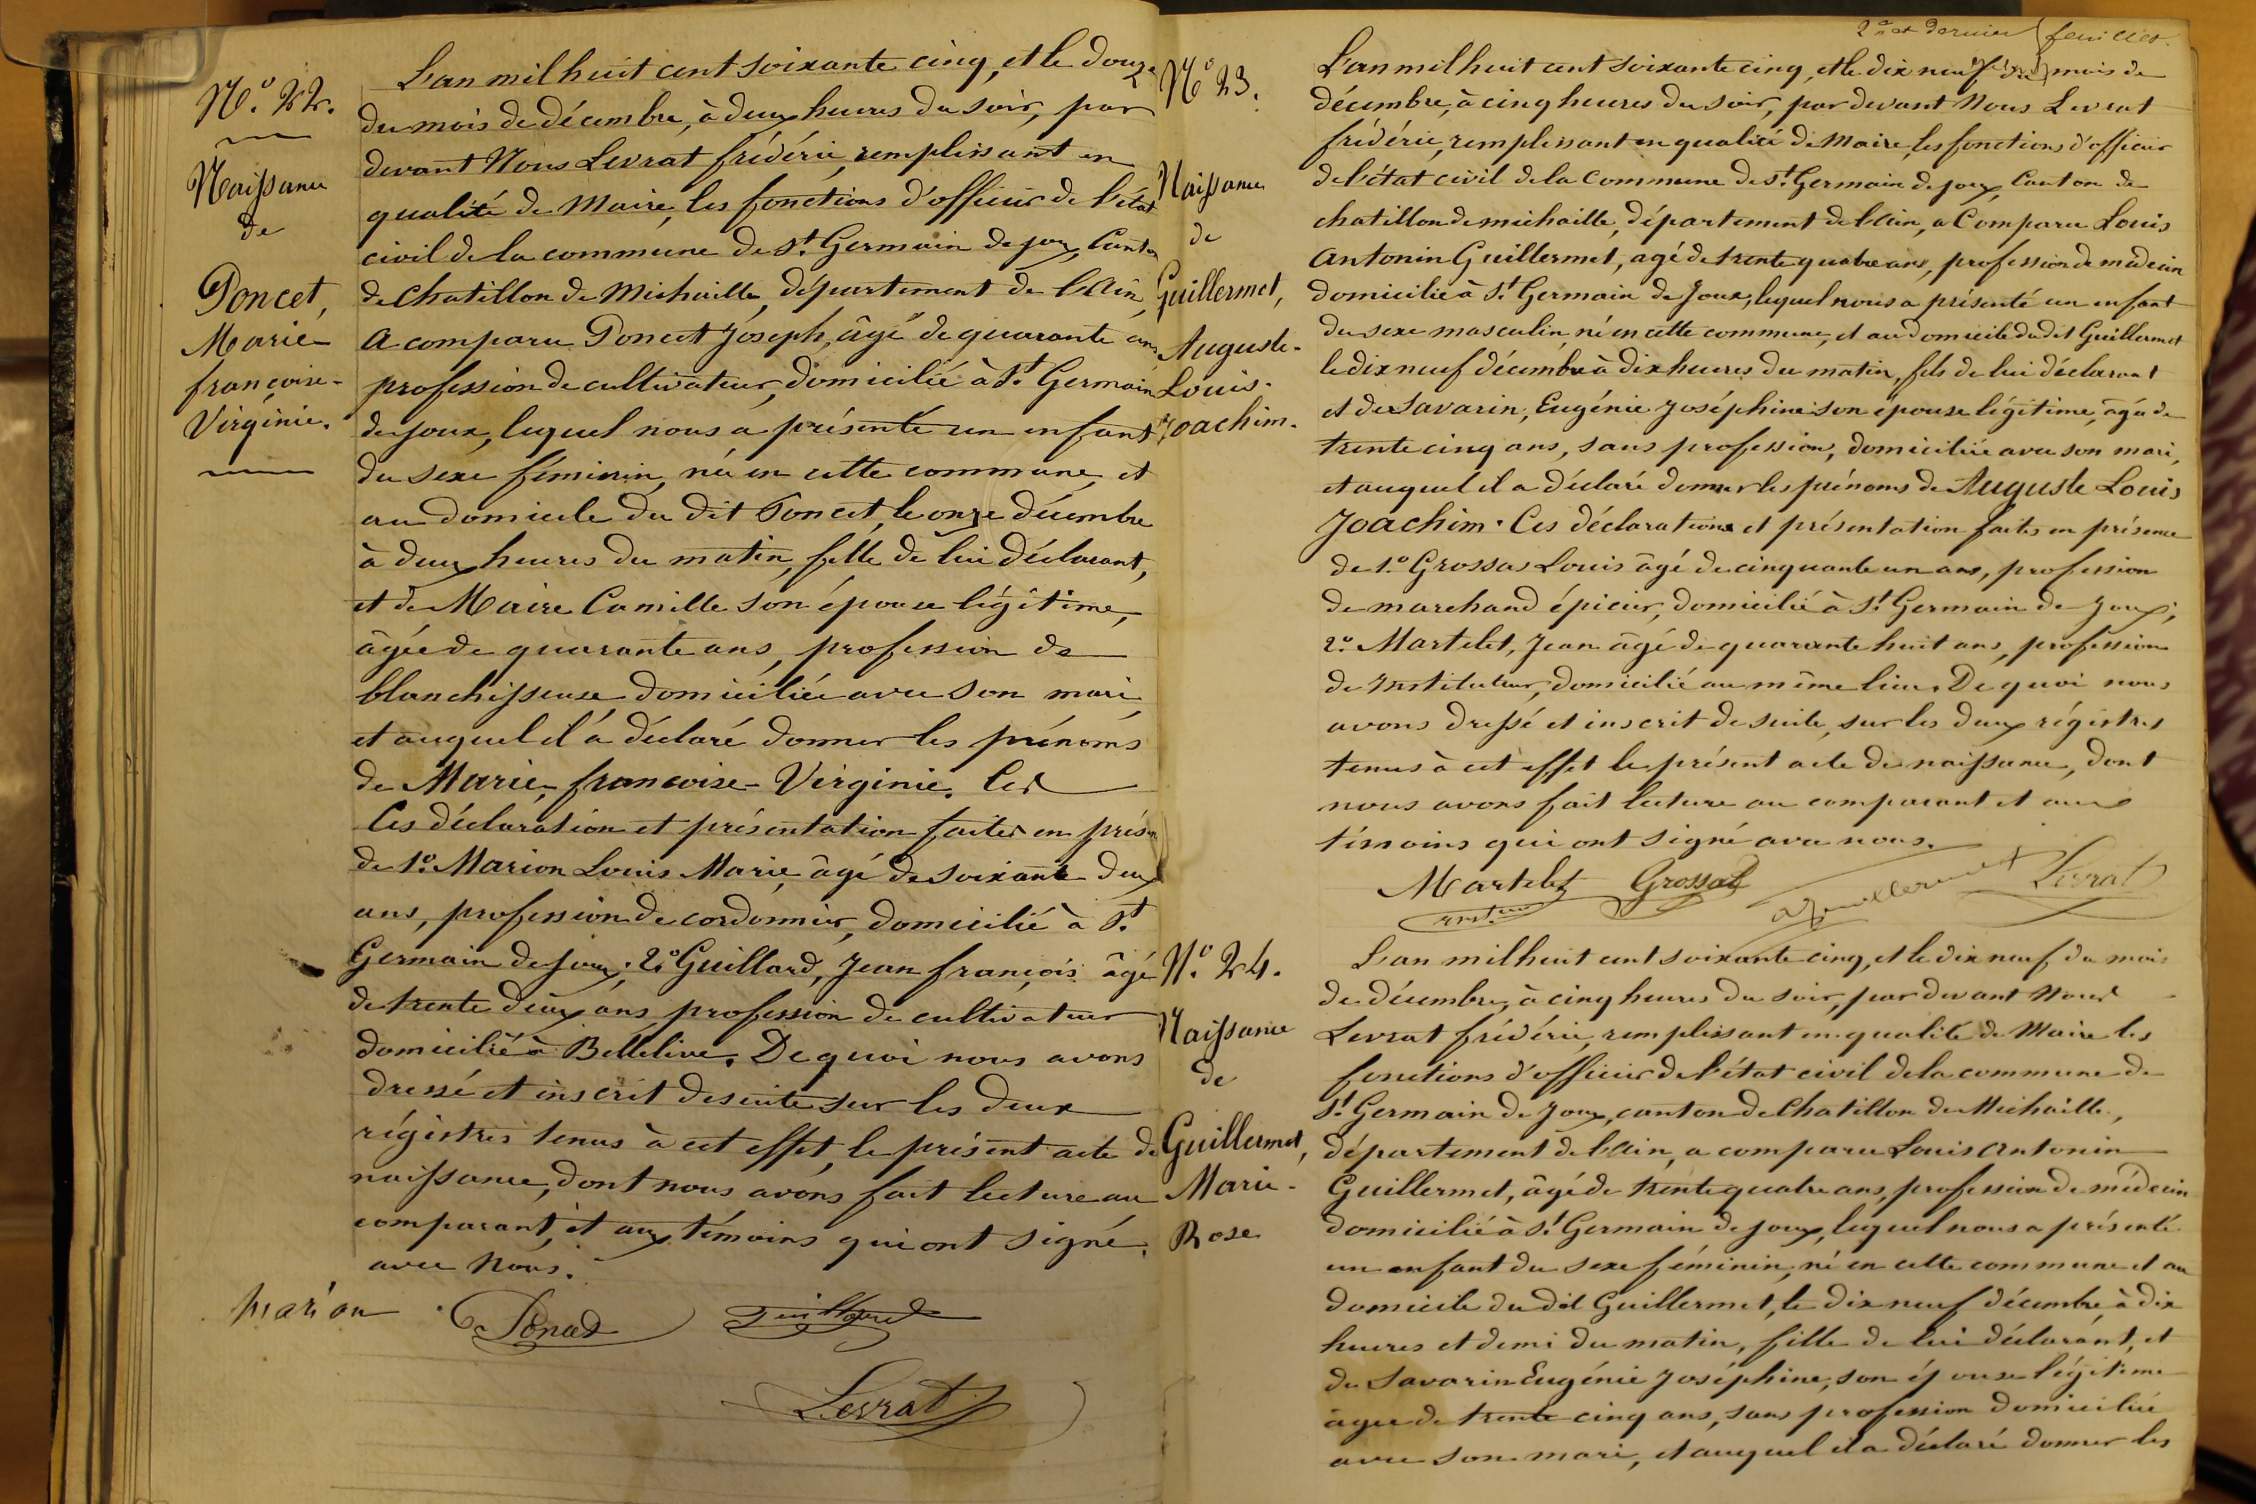 N.º 22.
Naissance
de
Poncet,
Marie
françoise-
Virginie.
L'an mil huit cent soixante cinq, et le douze
du mois de décembre, à deux heures du soir, par
devant Nous Levrat frédéric, remplissant en
qualité de Maire, les fonctions d'officier de l'état
civil de la commune de St. Germain de joux, Canton
de Chatillon de Michaille, département de l'Ain,
a comparu Poncet Joseph, âgé de quarante ans
profession de cultivateur, domicilié à St. Germain
de joux, lequel nous a présenté un enfant
du sexe féminin, née en cette commune, et
au domicile du dit Poncet, le onze décembre
à deux heures du matin, fille de lui déclarant,
et de Maire Camille son épouse légitime,
âgée de quarante ans, profession de
blanchisseuse, domiciliée avec son mari,
et auquel il a déclaré donner les prénoms
de Marie, francoise-Virginie. Ces
Ces déclaration et présentation faites en présen
de 1.º Marion Louis Marie, âgé de soixante deux
ans, profession de cordonnier, domicilié à St.
Germain de joux; 2.º Guillard, Jean françois âgé
de trente deux ans profession de cultivateur
domicilié à Bellelive. De quoi nous avons
dressé et inscrit desuite sur les deux
régistres tenus à cet effet, le présent acte de
naissance, dont nous avons fait lecture au
comparant, et aux témoins qui ont signé
avec Nous.
Marion Ponset Guillard
Levrat
2e et dernier feuillet.
N.º 23.
Naissance
de
Guillermet,
Auguste-
Louis-
Joachim.
L'an mil huit cent soixante cinq, et le dix neuf du mois de
décembre, à cinq heures du soir, par devant Nous Levrat
frédéric, remplissant en qualité de Maire, les fonctions d'officier
de l'état civil de la Commune de St. Germain de joux, Canton de
chatillon de michaille, département de l'ain, a Comparu Louis
Antonin Guillermet, agé de trente quatre ans, profession de médecin
domicilié à St. Germain de Joux, lequel nous a présenté un enfant
du sexe masculin, né en cette commune, et au domicile du dit Guillermet
le dix neuf décembre à dix heures du matin, fils de lui déclarant
et de Savarin, Eugénie Joséphine son épouse légitime, âgée de
trente cinq ans, sans profession, domiciliée avec son mari,
et auquel il a déclaré donner les prénoms de Auguste Louis
Joachim. Ces déclarations et présentation faites en présence
de 1.º Grossas Louis âgé de cinquante un ans, profession
de marchand épicier, domicilié à St. Germain de Joux;
2.º Martelet, Jean âgé de quarante huit ans, profession
de Instituteur, domicilié au même lieu. De quoi nous
avons dressé et inscrit de suite, sur les deux régistres
tenus à cet effet le présent acte de naissance, dont
nous avons fait lecture au comparant et aux
témoins qui ont signé avec nous.
Martelet Grossat Guillermet Levrat
N.º 24.
Naissance
de
Guillermet,
Marie-
Rose
L'an mil huit cent soixante cinq, et le dix neuf du mois
de décembre, à cinq heures du soir, par devant Nous
Levrat frédéric, remplissant en qualité de Maire les
fonctions d'officier de l'état civil de la commune de
St. Germain de Joux, canton de Chatillon de Michaille,
département de l'ain, a comparu Louis Antonin
Guillermet, âgé de trente quatre ans, profession de médecin
domicilié à St. Germain de joux, lequel nous a présenté
un enfant du sexe féminin, né en cette commune et au
domicile du dit Guillermet, le dix neuf décembre, à dix
heures et demi du matin, fille de lui déclarant, et
de Savarin Eugénie Joséphine, son épouse légitime
âgée de trente cinq ans, sans profession domiciliée
avec son mari, et auquel il a déclaré donner les